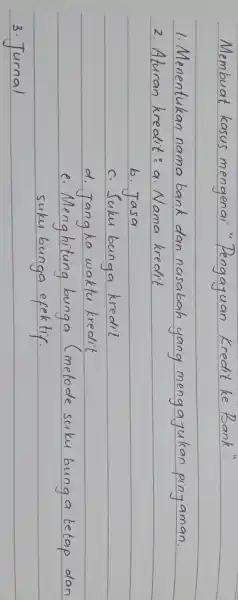 Membuat kasus mengenai "Pengajuan Kredit ke Bank"
1. Menentukan nama bank dan nasabah yang mengajukan pinjaman.
2. Aturan kredit : a. Nama kredit
b. Jasa
c. Suku bunga kredit
d. Jangka waktu kredit
e. Menghitung bunga (metode suku bunga tetap dan
suku bunga efektif.
3. Jurnal